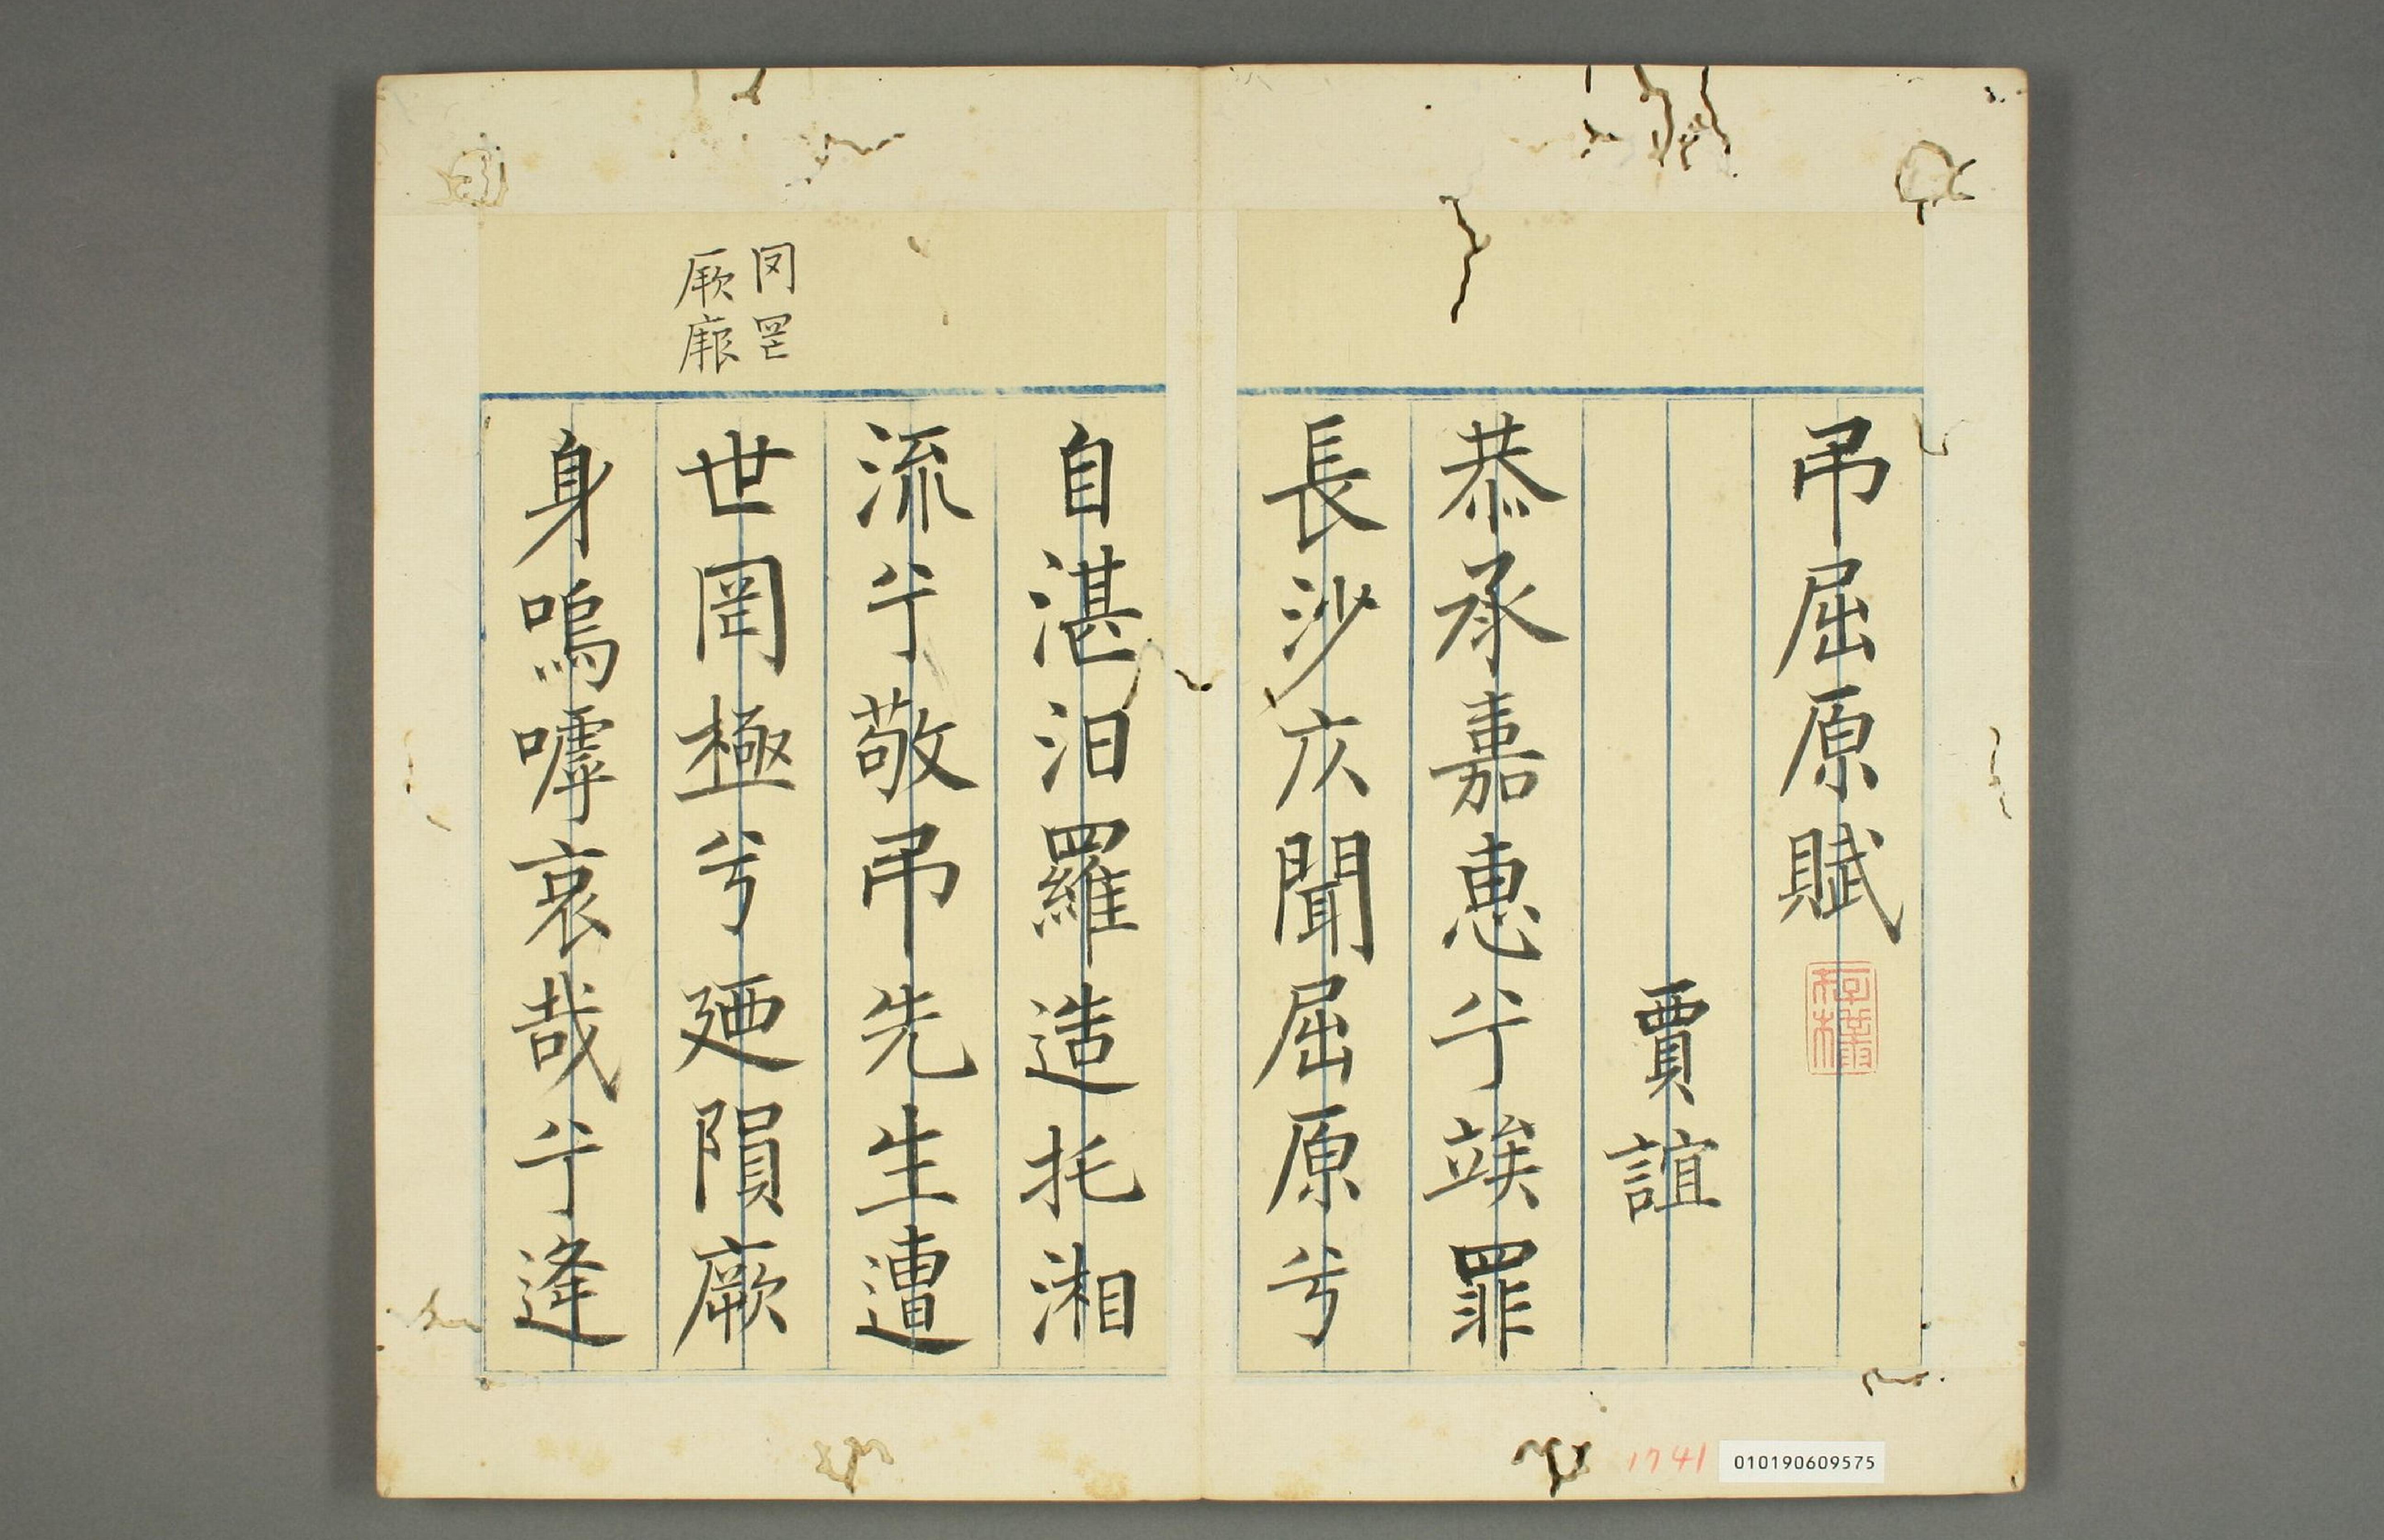 吊屈原賦
賈誼
恭承嘉惠兮竢罪
長沙仄聞屈原兮
自湛汨羅造托湘
流兮敬吊先生遭
世罔極兮廼隕厥
身嗚嘑哀哉兮逢
1741
010190609575